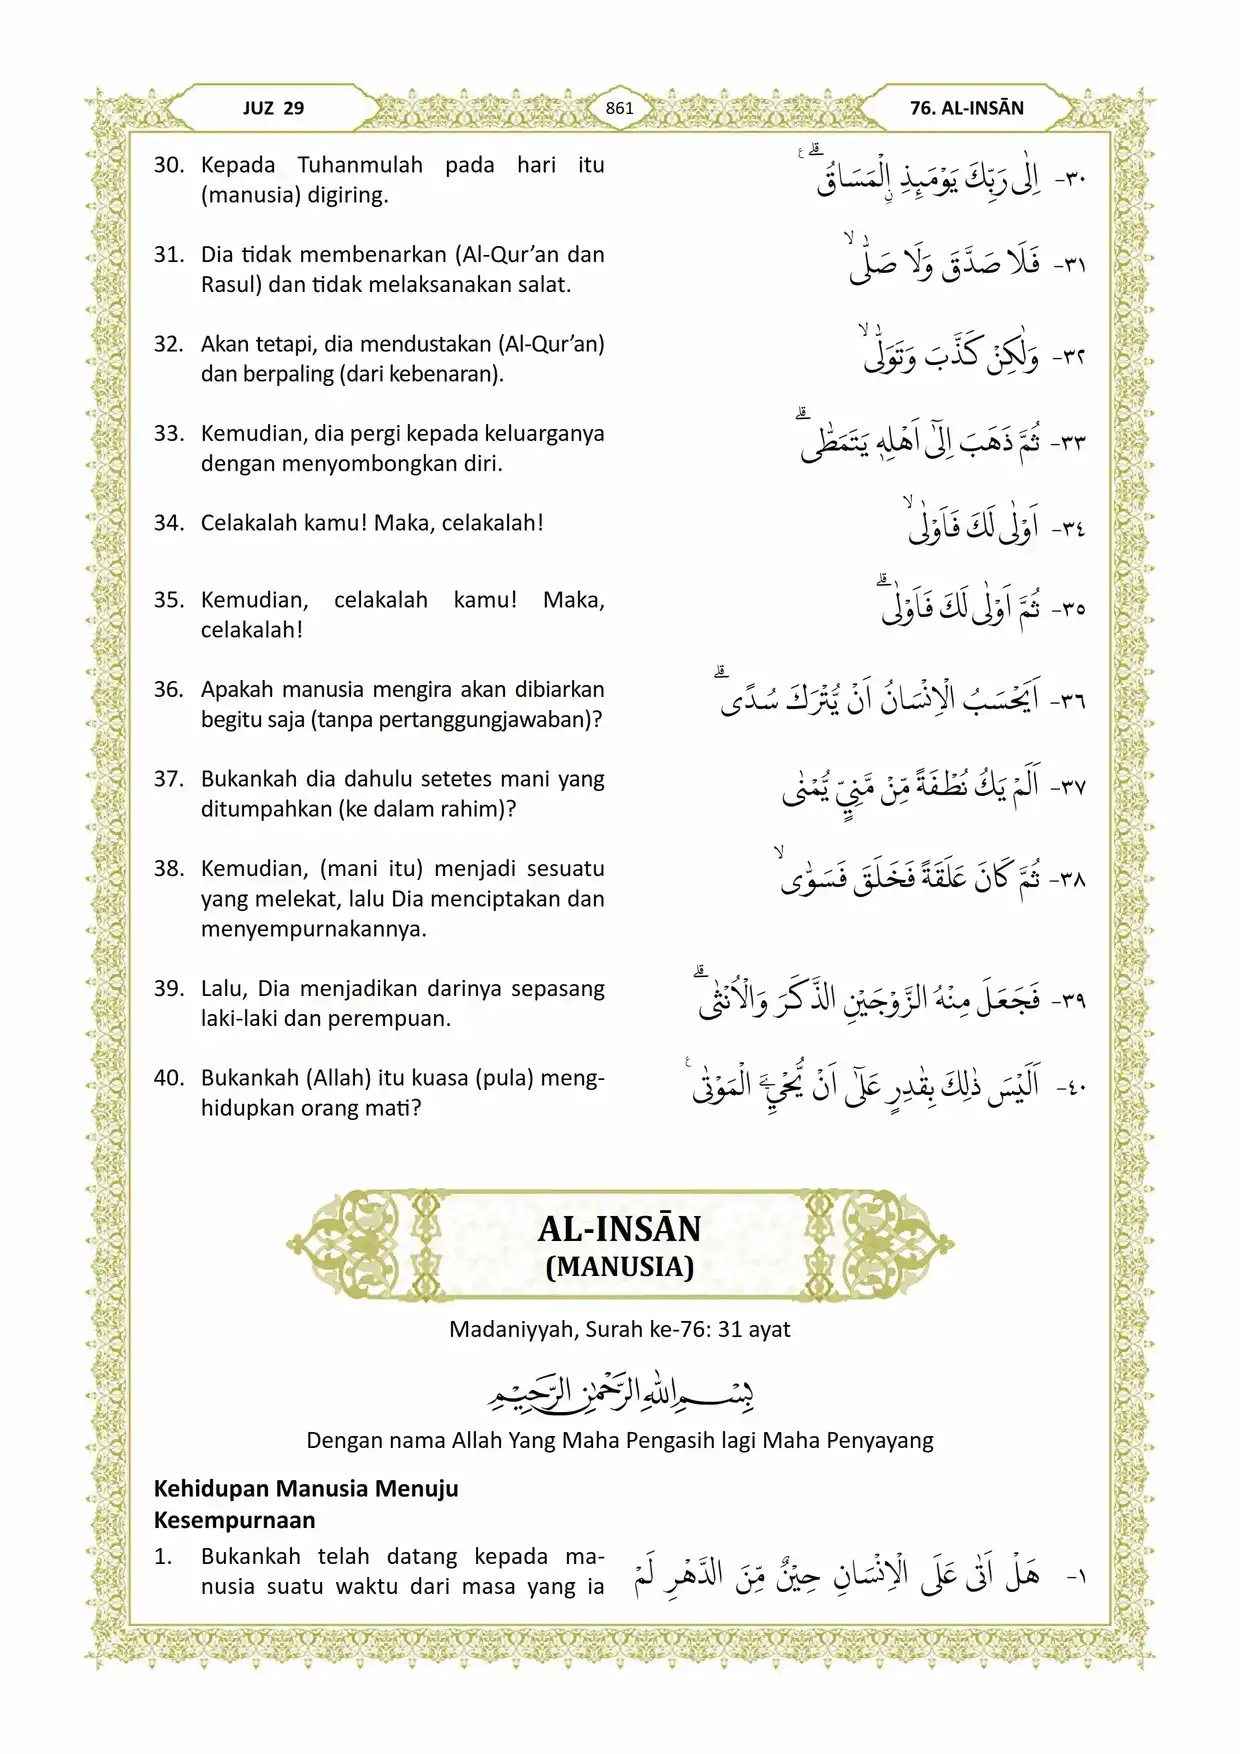 JUZ 29
861
76. AL-INSĀN
30. Kepada Tuhanmulah pada hari itu
(manusia) digiring.
٣٠- اِلٰى رَبِّكَ يَوْمَىِٕذِ ِۨالْمَسَاقُ ۗ ࣖ
31. Dia tidak membenarkan (Al-Qur’an dan
Rasul) dan tidak melaksanakan salat.
٣١- فَلَا صَدَّقَ وَلَا صَلّٰىۙ
32. Akan tetapi, dia mendustakan (Al-Qur’an)
dan berpaling (dari kebenaran).
٣٢- وَلٰكِنْ كَذَّبَ وَتَوَلّٰىۙ
33. Kemudian, dia pergi kepada keluarganya
dengan menyombongkan diri.
٣٣- ثُمَّ ذَهَبَ اِلٰٓى اَهْلِهٖ يَتَمَطّٰىۗ
34. Celakalah kamu! Maka, celakalah!
٣٤- اَوْلٰى لَكَ فَاَوْلٰىۙ
35. Kemudian, celakalah kamu! Maka,
celakalah!
٣٥- ثُمَّ اَوْلٰى لَكَ فَاَوْلٰىۗ
36. Apakah manusia mengira akan dibiarkan
begitu saja (tanpa pertanggungjawaban)?
٣٦- اَيَحْسَبُ الْاِنْسَانُ اَنْ يُّتْرَكَ سُدًىۗ
37. Bukankah dia dahulu setetes mani yang
ditumpahkan (ke dalam rahim)?
٣٧- اَلَمْ يَكُ نُطْفَةً مِّنْ مَّنِيٍّ يُّمْنٰى
38. Kemudian, (mani itu) menjadi sesuatu
yang melekat, lalu Dia menciptakan dan
menyempurnakannya.
٣٨- ثُمَّ كَانَ عَلَقَةً فَخَلَقَ فَسَوّٰىۙ
39. Lalu, Dia menjadikan darinya sepasang
laki-laki dan perempuan.
٣٩- فَجَعَلَ مِنْهُ الزَّوْجَيْنِ الذَّكَرَ وَالْاُنْثٰىۗ
40. Bukankah (Allah) itu kuasa (pula) meng-
hidupkan orang mati?
٤٠- اَلَيْسَ ذٰلِكَ بِقٰدِرٍ عَلٰٓى اَنْ يُّحْيِۦَ الْمَوْتٰى ࣖ
AL-INSĀN
(MANUSIA)
Madaniyyah, Surah ke-76: 31 ayat
بِسْمِ اللّٰهِ الرَّحْمٰنِ الرَّحِيْمِ
Dengan nama Allah Yang Maha Pengasih lagi Maha Penyayang
Kehidupan Manusia Menuju
Kesempurnaan
1. Bukankah telah datang kepada ma-
nusia suatu waktu dari masa yang ia
١- هَلْ اَتٰى عَلَى الْاِنْسَانِ حِيْنٌ مِّنَ الدَّهْرِ لَمْ